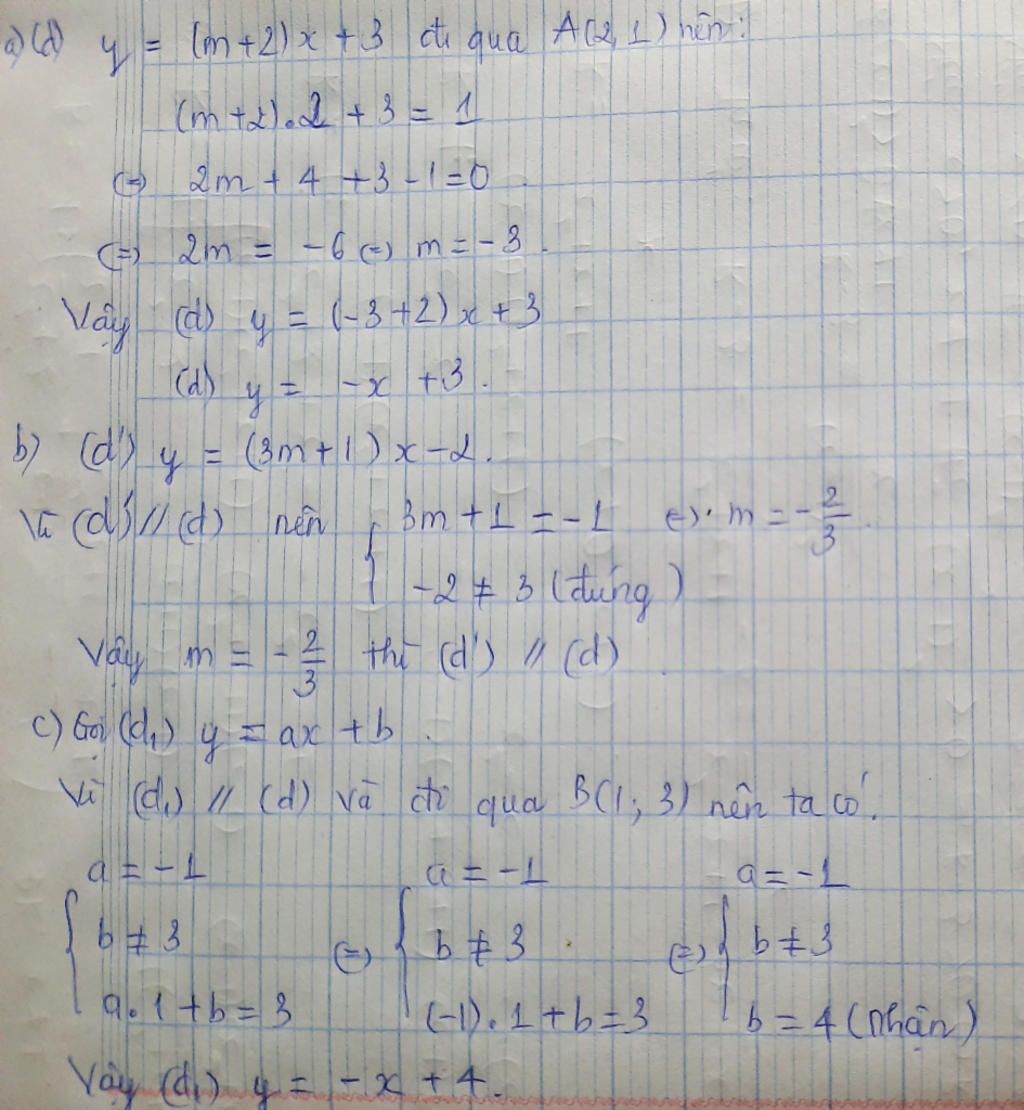 a) (d) y = (m+2)x + 3 đi qua A(2,1) nên:
(m+2).2 + 3 = 1
(=) 2m + 4 + 3 - 1 = 0
(=) 2m = -6 (=) m = -3.
Vậy (d) y = (-3+2)x + 3
(d) y = -x + 3.
b) (d') y = (3m+1)x - 2.
Vì (d') // (d) nên { 3m + 1 = -1 (=) m = -2/3.
-2 ≠ 3 (đúng)
Vậy m = -2/3 thì (d') // (d)
c) Gọi (d₁) y = ax + b.
Vì (d₁) // (d) và đi qua B(1; 3) nên ta có.
a = -1 a = -1 a = -1
{ b ≠ 3 (=) { b ≠ 3 (=) { b ≠ 3
a.1 + b = 3 (-1).1 + b = 3 b = 4 (nhận)
Vậy (d₁) y = -x + 4.